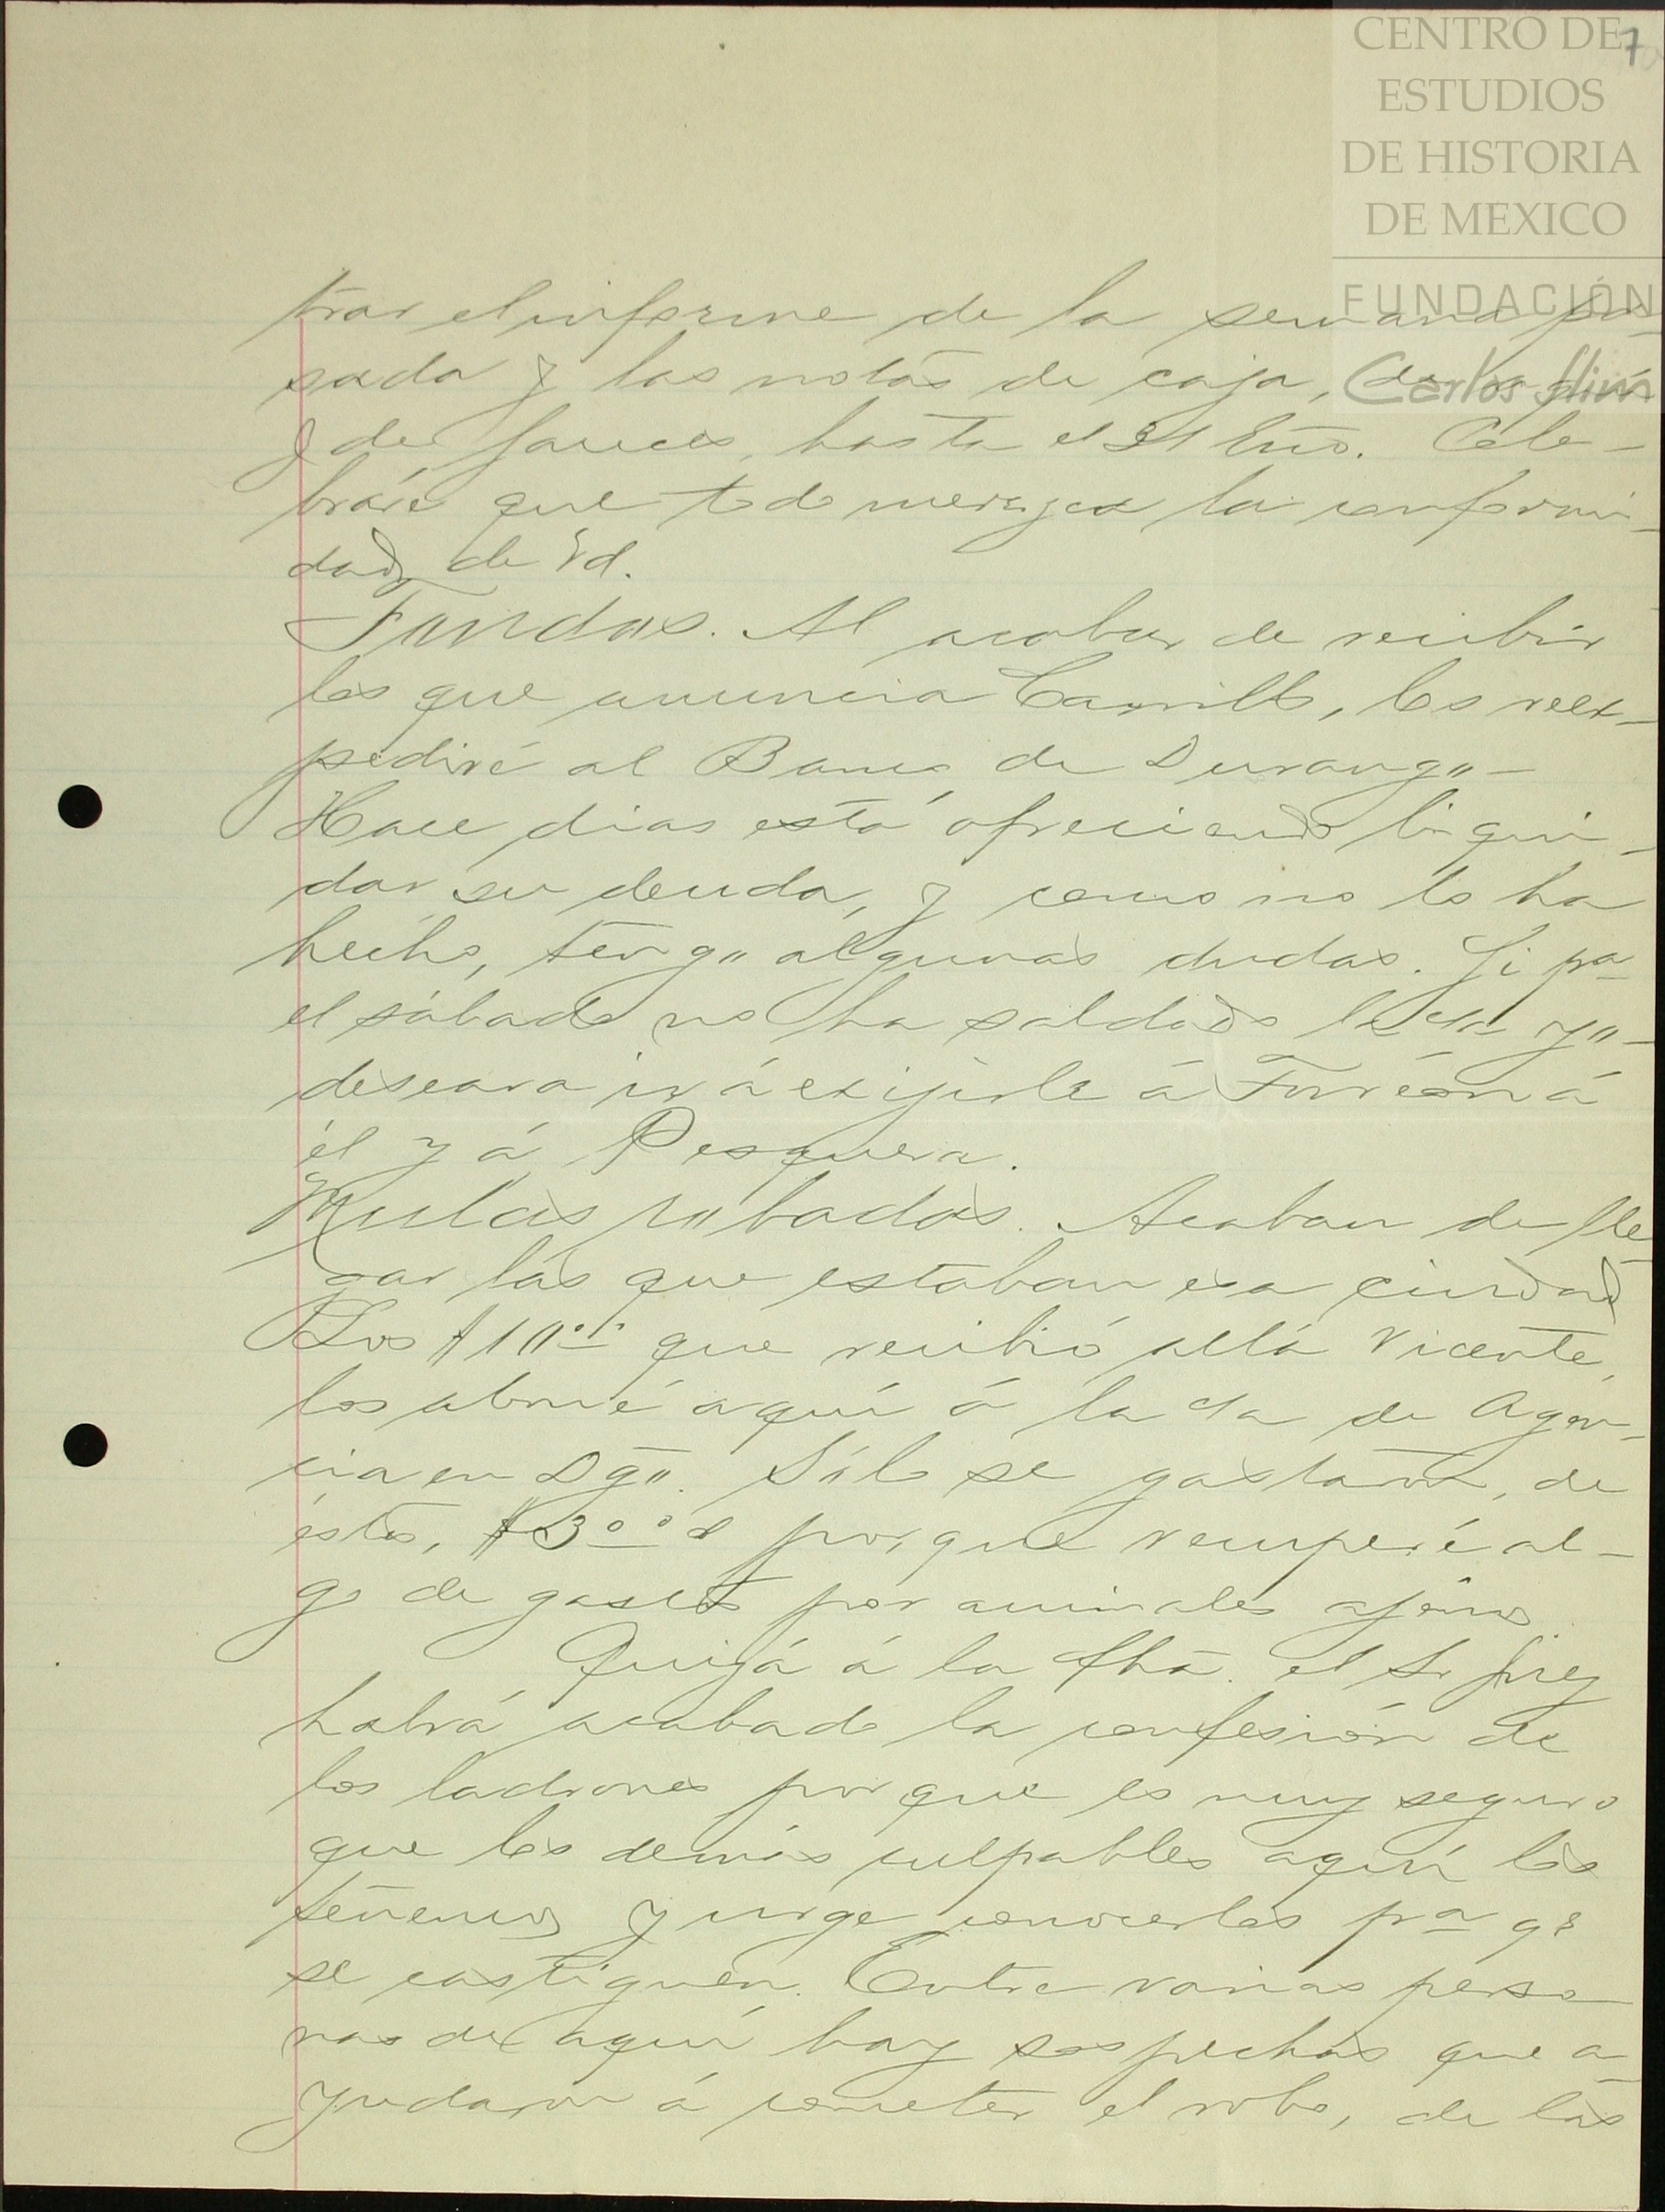 CENTRO DE
ESTUDIOS
DE HISTORIA
DE MEXICO
FUNDACIÓN
Carlos Slim
7
trar el informe de la semana pa-
sada y las notas de caja, de
y de hasta el 31 Eno. Cele-
braré que todo merezca la conformi-
dad de Ud.
Fondos. Al acabar de recibir
los que anuncia Carrillo, los reex-
pediré al Banco de Durango-
Hace dias está ofreciendo liqui-
dar su deuda, y como no lo ha
hecho, tengo algunas dudas. Si pa
el sábado no ha saldado la cta yo
deseara ir á exijirle á Torreón á
él y á Pesquera.
Mulas robadas. Acaban de lle
gar las que estaban esa ciudad
Los $10.00 que recibió allá Vicente,
los aboné aquí á la cta de Agen-
cia en Dgo. Sólo se gastaron, de
éstos, $3.00 porque recuperé al-
go de gastos por animales ajenos
Quizá á la fha. el Sr Juez
habrá acabado la confesión de
los ladrones porque es muy seguro
que los demás culpables aquí los
tenemos y urge conocerlos pa qe
se castiguen. Entre varias perso
nas de aquí hay sospechas que a
yudaron á cometer el robo, de las